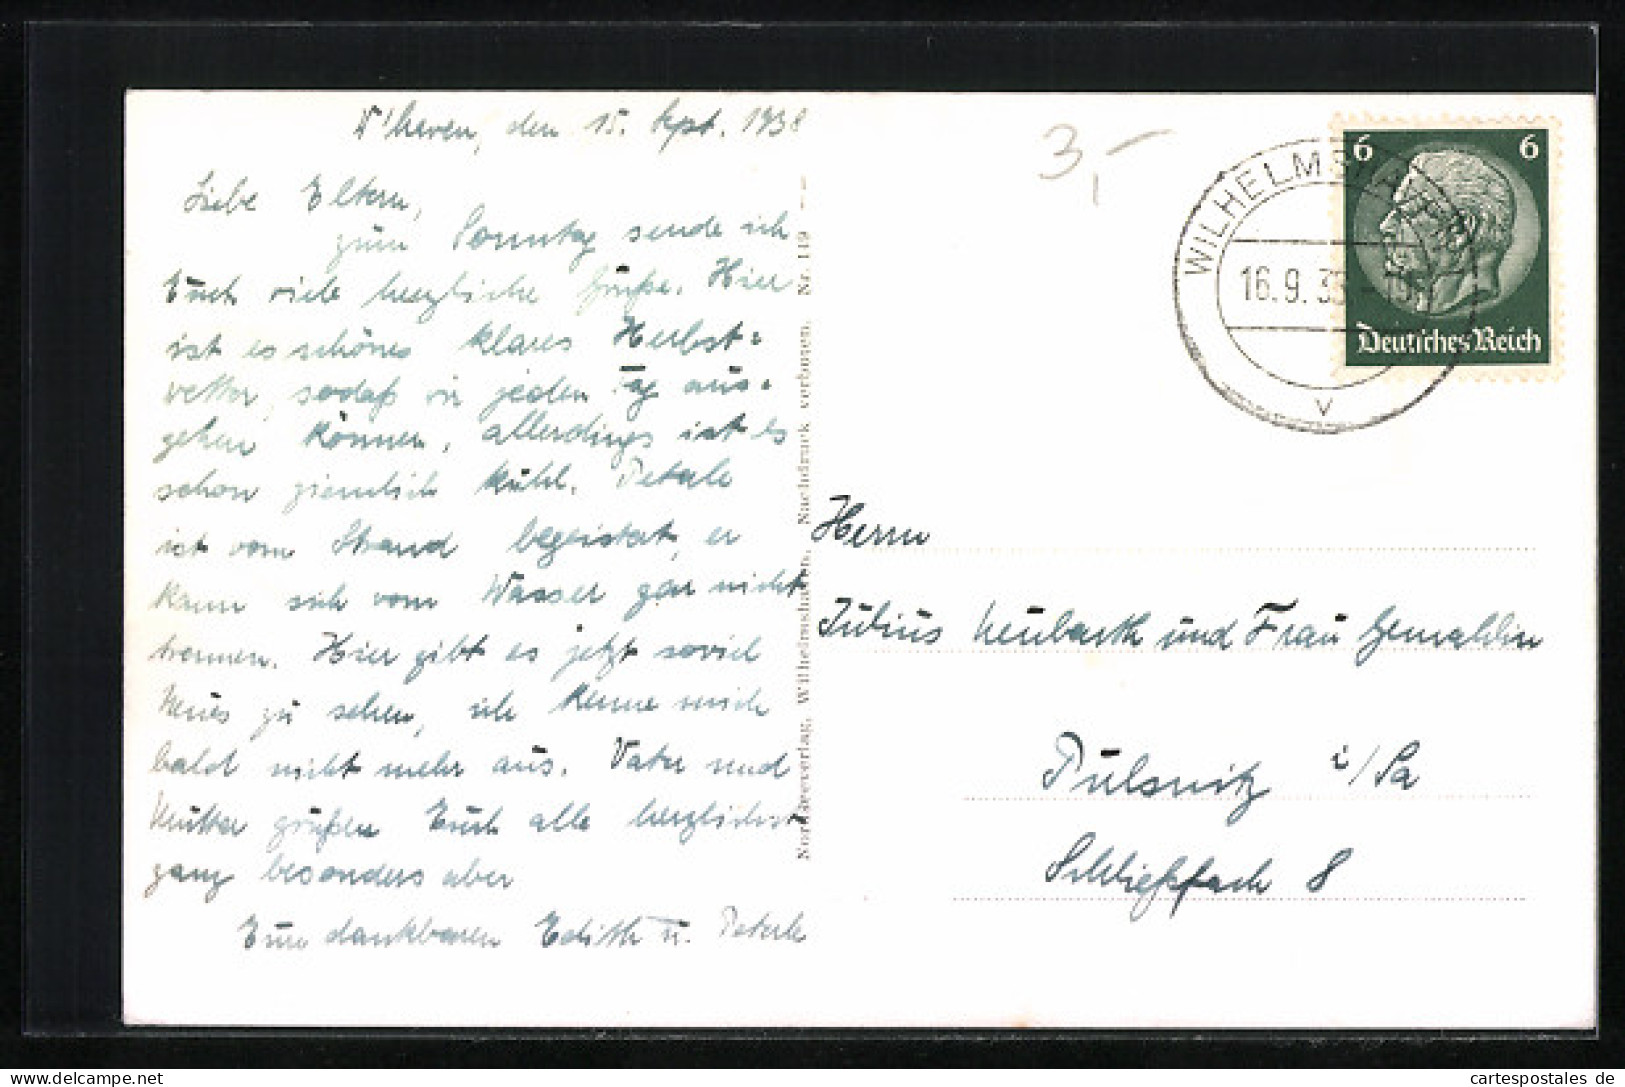 W'haven, den 15. Sept. 1938
Liebe Eltern,
zum Sonntag sende ich
Euch viele herzliche Grüße. Hier
ist es schönes klares Herbst-
wetter, sodaß wir jeden Tag aus-
gehen können, allerdings ist es
schon ziemlich kühl. Peterle
ist vom Strand begeistert, er
kann sich vom Wasser gar nicht
trennen. Hier gibt es jetzt soviel
Neues zu sehen, ich kenne mich
bald nicht mehr aus. Vater und
Mutter grüßen Euch alle herzlichst
ganz besonders aber
Eure dankbaren Edith u. Peterle
Nordseeverlag, Wilhelmshaven, Nachdruck verboten. Nr. 149
3,-
WILHELMSHAVEN
16.9.38
V
6 6
Deutsches Reich
Herrn
Julius Neubarth und Frau Gemahlin
Pulsnitz i/Sa
Schließfach 8
cartespostales de